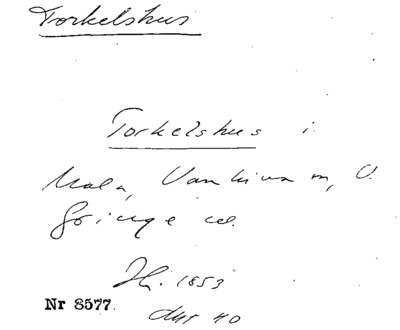 Torkelshus
Torkelshus i
Mala, Vankiva sn, V.
Göinge hd.
Jbr. 1853
Nr 8577.
dur 40